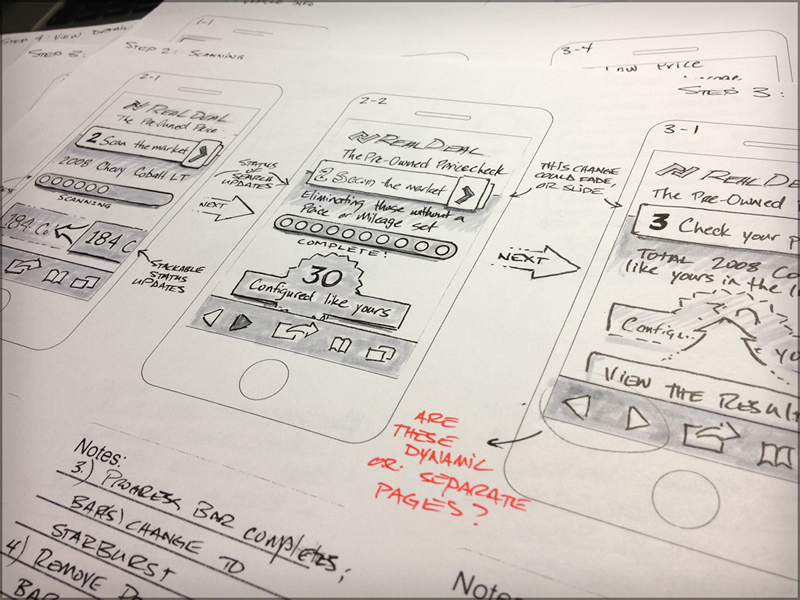 VEHICLE INFO
STEP 4: VIEW DETAIL
STEP 3:
STEP 2: SCANNING
1-1
2-1
REAL DEAL
The Pre-Owned Price
2 Scan the market
2008 Chevy Cobalt LT
SCANNING
184 Co
184 C
NEXT
STATUS
OF
SEARCH
UPDATES
STACKABLE
STATUS
UPDATES
2-2
REAL DEAL
The Pre-Owned Pricecheck
2 Scan the market
Eliminating those without a
Price or Mileage set
COMPLETE!
30
Configured like yours
THIS CHANGE
COULD FADE,
OR SLIDE
NEXT
3-4
Price
STEP 3:
3-1
REAL DE
The Pre-Owned
3 Check your p
TOTAL 2008 Co
like yours in the
Configu..
YO
VIEW THE RESULT
ARE
THESE
DYNAMIC
OR SEPARATE
PAGES?
Notes:
3) PROGRESS BAR COMPLETES;
BAR(S) CHANGE TO
STARBURST
4) REMOVE
BAR
Notes